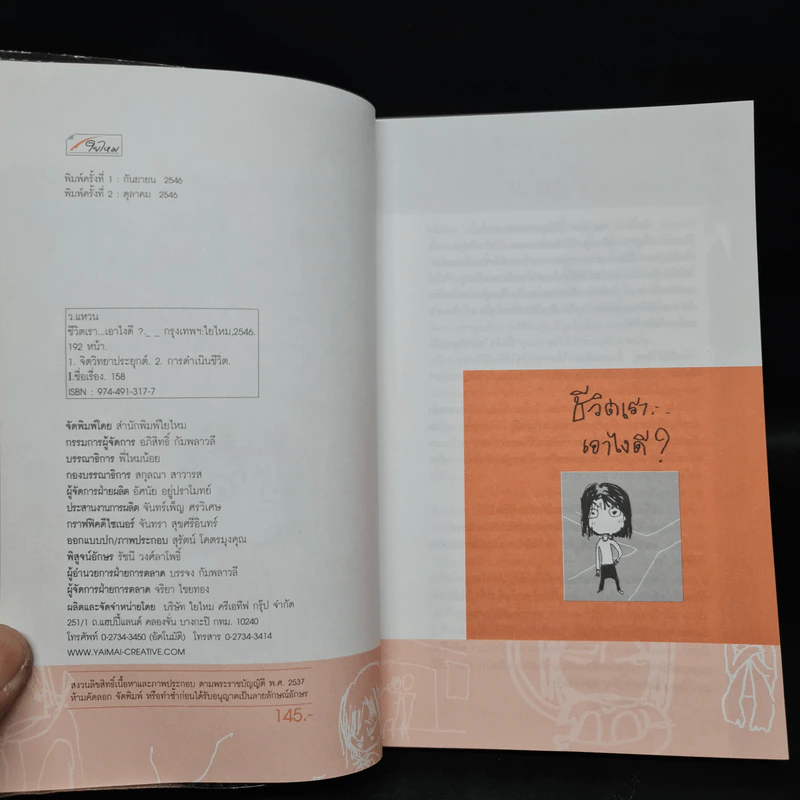 ใยไหม
พิมพ์ครั้งที่ 1 : กันยายน 2546
พิมพ์ครั้งที่ 2 : ตุลาคม 2546
ว.แหวน
ชีวิตเรา...เอาไงดี ?._ _ กรุงเทพฯ:ใยไหม,2546.
192 หน้า.
1. จิตวิทยาประยุกต์. 2. การดำเนินชีวิต.
I.ชื่อเรื่อง. 158
ISBN : 974-491-317-7
จัดพิมพ์โดย สำนักพิมพ์ใยไหม
กรรมการผู้จัดการ อภิสิทธิ์ กัมพลาวลี
บรรณาธิการ พี่ไหมน้อย
กองบรรณาธิการ สกุลณา สาวารส
ผู้จัดการฝ่ายผลิต อัศนัย อยู่ปราโมทย์
ประสานงานการผลิต จันทร์เพ็ญ ศรวิเศษ
กราฟฟิคดีไซเนอร์ จันทรา สุขศรีอินทร์
ออกแบบปก/ภาพประกอบ สุรัตน์ โคตรมุงคุณ
พิสูจน์อักษร รัชนี วงศ์ลาโพธิ์
ผู้อำนวยการฝ่ายการตลาด บรรจง กัมพลาวลี
ผู้จัดการฝ่ายการตลาด จริยา ไชยทอง
ผลิตและจัดจำหน่ายโดย บริษัท ใยไหม ครีเอทีฟ กรุ๊ป จำกัด
251/1 ถ.แฮปปี้แลนด์ คลองจั่น บางกะปิ กทม. 10240
โทรศัพท์ 0-2734-3450 (อัตโนมัติ) โทรสาร 0-2734-3414
WWW.YAIMAI-CREATIVE.COM
สงวนลิขสิทธิ์เนื้อหาและภาพประกอบ ตามพระราชบัญญัติ พ.ศ. 2537
ห้ามคัดลอก จัดพิมพ์ หรือทำซ้ำก่อนได้รับอนุญาตเป็นลายลักษณ์อักษร
145.-
ชีวิตเรา...
เอาไงดี ?